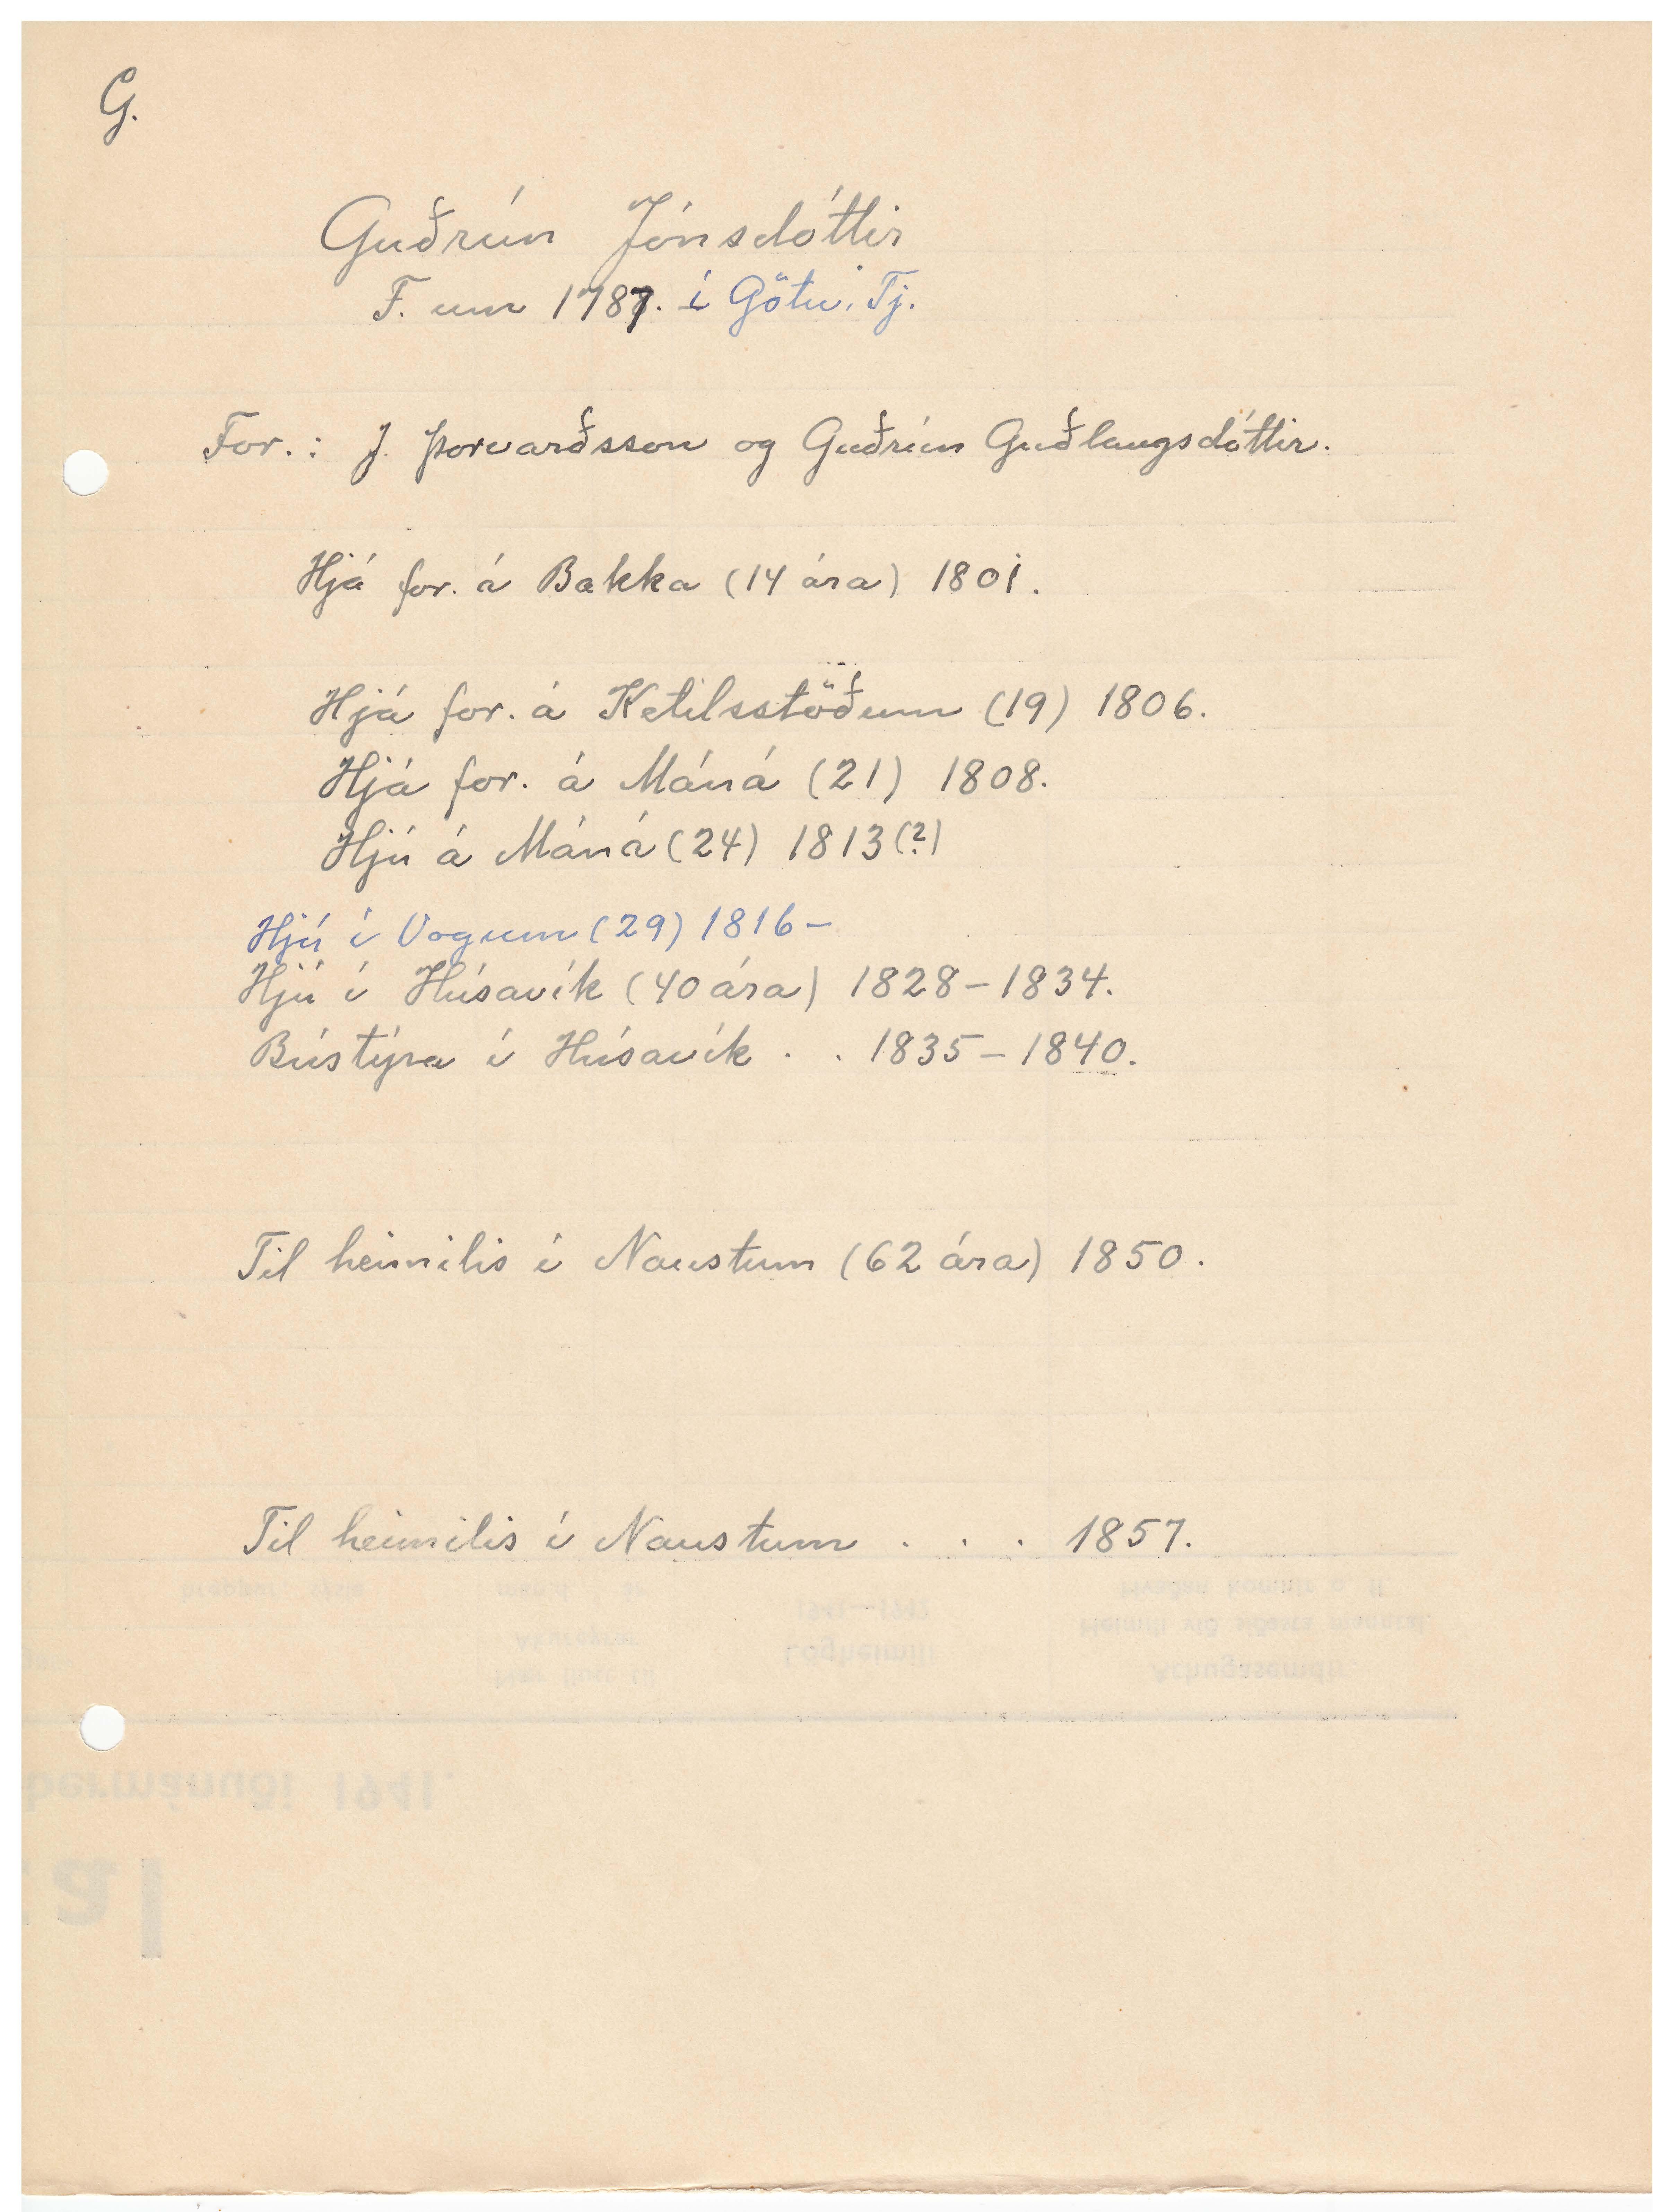 G.
Guðrún Jónsdóttir
F. um 1787. í Götu. Tj.
For.: J. Þorvarðsson og Guðrún Guðlaugsdóttir.
Hjá for. á Bakka (14 ára) 1801.
Hjá for. á Ketilsstöðum (19) 1806.
Hjá for. á Máná (21) 1808.
Hjú á Máná (24) 1813 (?)
Hjú í Vogum (29) 1816 –
Hjú í Húsavík (40 ára) 1828 – 1834.
Bústýra í Húsavík . . 1835 – 1840.
Til heimilis í Naustum (62 ára) 1850.
Til heimilis í Naustum . . . 1857.
bermánuði 1941.